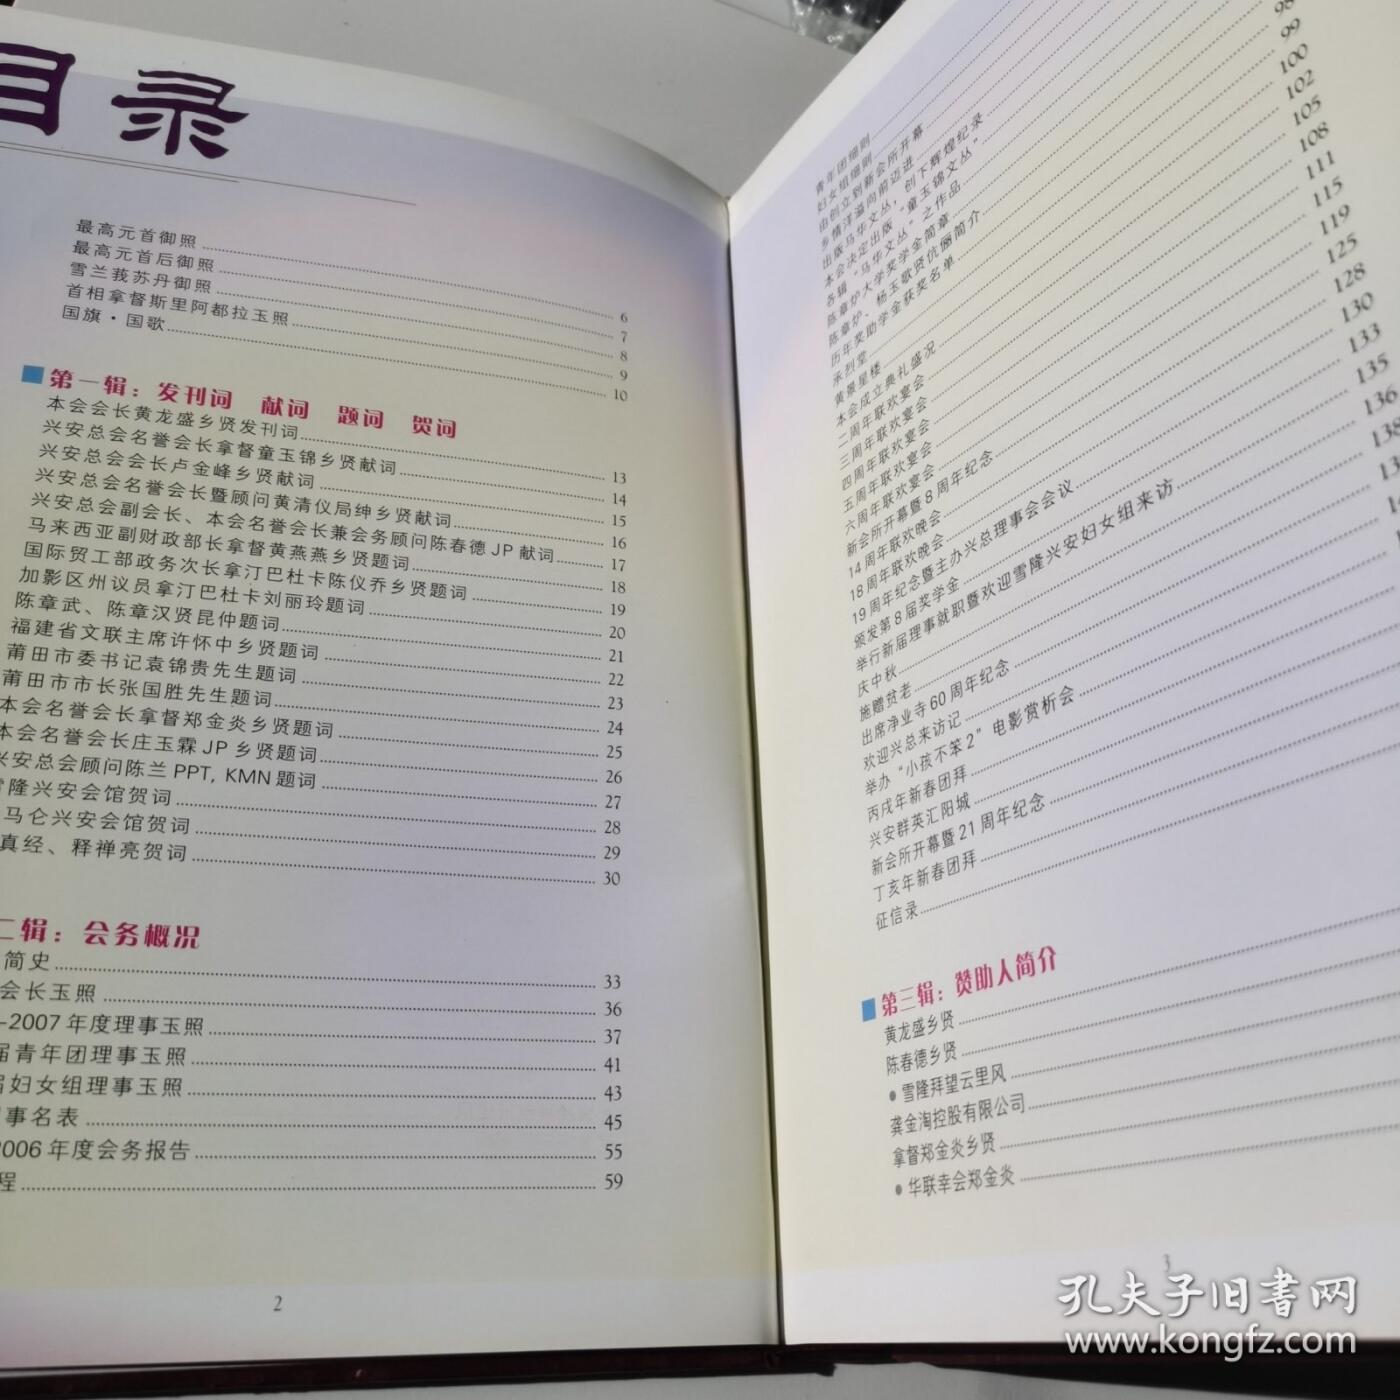 目录
最高元首御照 6
最高元首后御照 7
雪兰莪苏丹御照 8
首相拿督斯里阿都拉玉照 9
国旗·国歌 10
第一辑：发刊词 献词 题词 贺词
本会会长黄龙盛乡贤发刊词 13
兴安总会名誉会长拿督童玉锦乡贤献词 14
兴安总会会长卢金峰乡贤献词 15
兴安总会名誉会长暨顾问黄清仪局绅乡贤献词 16
兴安总会副会长、本会名誉会长兼会务顾问陈春德JP献词 17
马来西亚副财政部长拿督黄燕燕乡贤题词 18
国际贸工部政务次长拿汀巴杜卡陈仪乔乡贤题词 19
加影区州议员拿汀巴杜卡刘丽玲题词 20
陈章武、陈章汉贤昆仲题词 21
福建省文联主席许怀中乡贤题词 22
莆田市委书记袁锦贵先生题词 23
莆田市市长张国胜先生题词 24
本会名誉会长拿督郑金炎乡贤题词 25
本会名誉会长庄玉霖JP乡贤题词 26
兴安总会顾问陈兰PPT, KMN题词 27
雪隆兴安会馆贺词 28
马仑兴安会馆贺词 29
真经、释禅亮贺词 30
二辑：会务概况
简史 33
会长玉照 36
-2007年度理事玉照 37
届青年团理事玉照 41
届妇女组理事玉照 43
事名表 45
2006年度会务报告 55
程 59
2
青年团细则
妇女组细则
由创立到新会所开幕
乡情洋溢向前迈进
出版马华文丛，创下辉煌纪录
本会决定出版“童玉锦文丛”
各辑“马华文丛”之作品
陈章炉大学奖学金简章
陈章炉、杨玉歌贤伉俪简介
历年奖助学金获奖名单
承烈堂
黄景星楼
本会成立典礼盛况
二周年联欢宴会
三周年联欢宴会
四周年联欢宴会
五周年联欢宴会
六周年联欢宴会
新会所开幕暨8周年纪念
14周年联欢晚会
18周年联欢晚会
19周年纪念暨主办兴总理事会会议
颁发第8届奖学金
举行新届理事就职暨欢迎雪隆兴安妇女组来访
庆中秋
施赠贫老
出席净业寺60周年纪念
欢迎兴总来访记
举办“小孩不笨2”电影赏析会
丙戌年新春团拜
兴安群英汇阳城
新会所开幕暨21周年纪念
丁亥年新春团拜
征信录
98
99
100
102
105
108
111
115
119
125
128
130
133
135
136
138
第三辑：赞助人简介
黄龙盛乡贤
陈春德乡贤
●雪隆拜望云里风
龚金淘控股有限公司
拿督郑金炎乡贤
●华联幸会郑金炎
3
孔夫子旧书网
www.kongfz.com